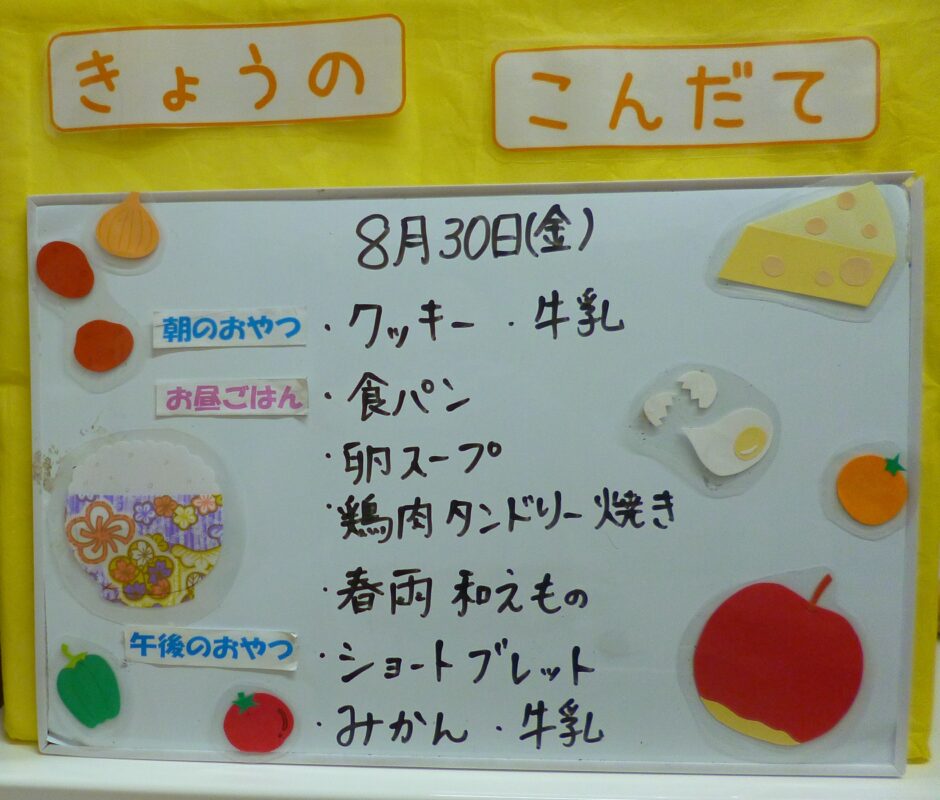 きょうの こんだて
8月30日(金)
朝のおやつ ・クッキー ・牛乳
お昼ごはん ・食パン
・卵スープ
・鶏肉タンドリー焼き
・春雨和えもの
午後のおやつ ・ショートブレット
・みかん ・牛乳